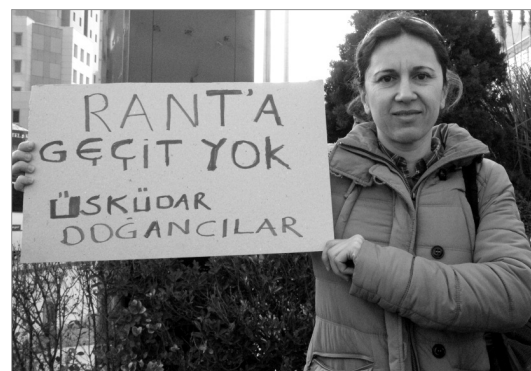 RANT'A
GEÇİT YOK
ÜSKÜDAR
DOĞANCILAR